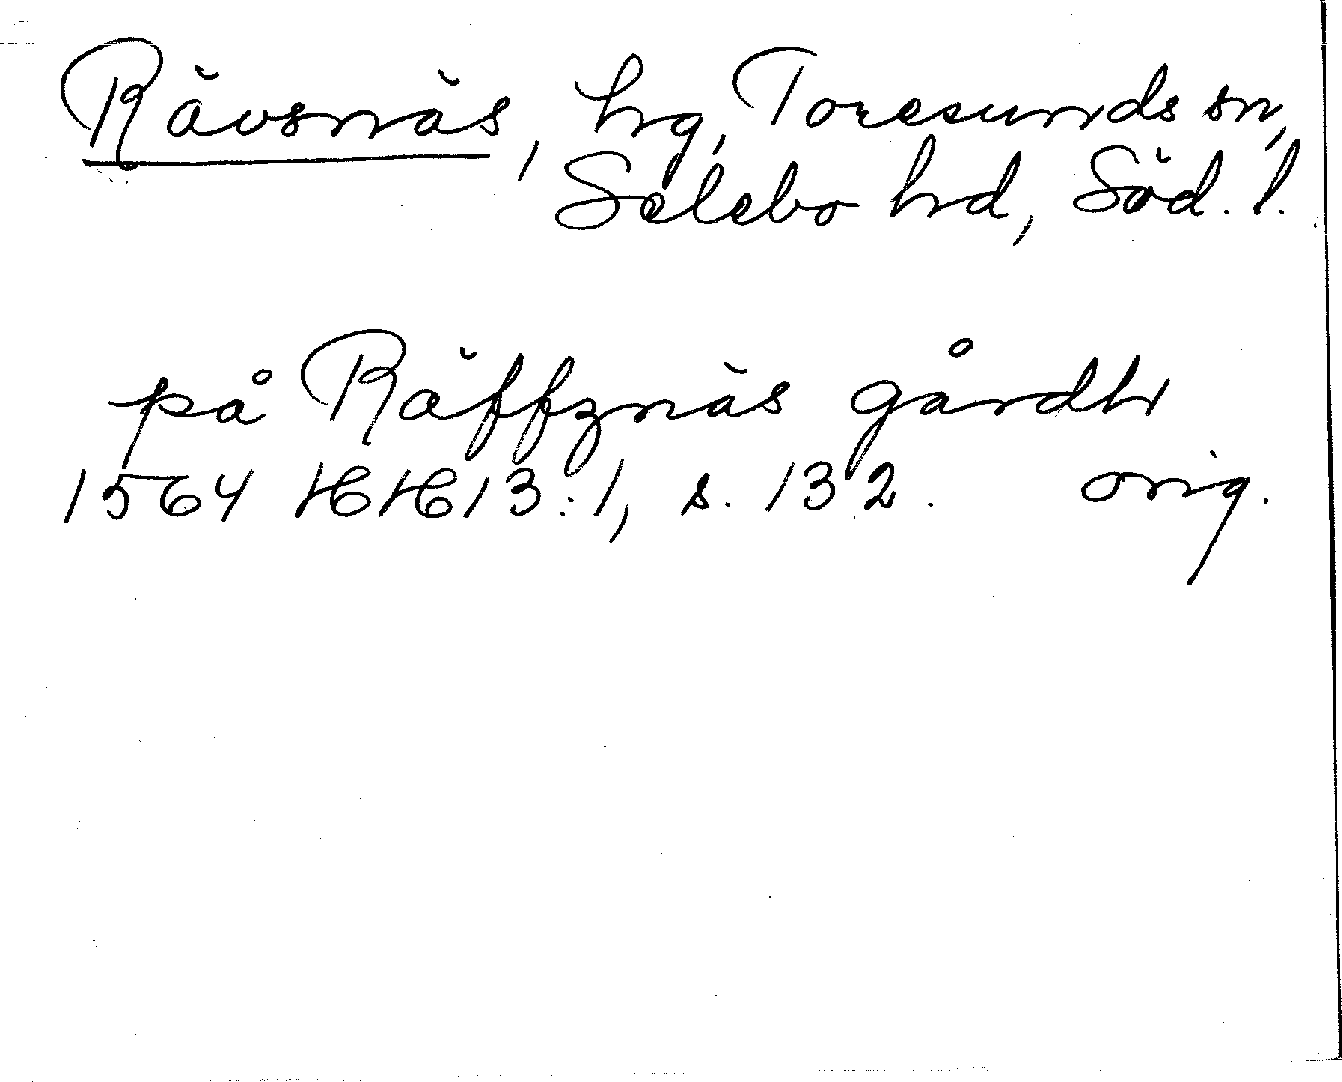 Rävsnäs, hg, Toresunds sn,
Selebo hd, Söd. l.
på Räffznäs gårdh
1564 HH 13:1, s. 132. orig.